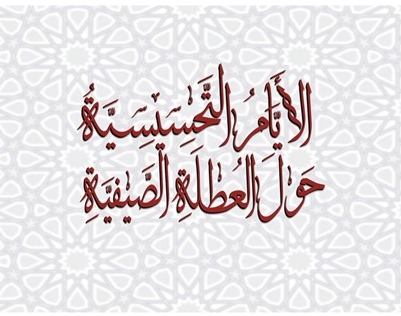 الأَيَّامُ التَّحسِيسِيَّةُ
حَولَ العُطلَةِ الصَّيفِيَّةِ